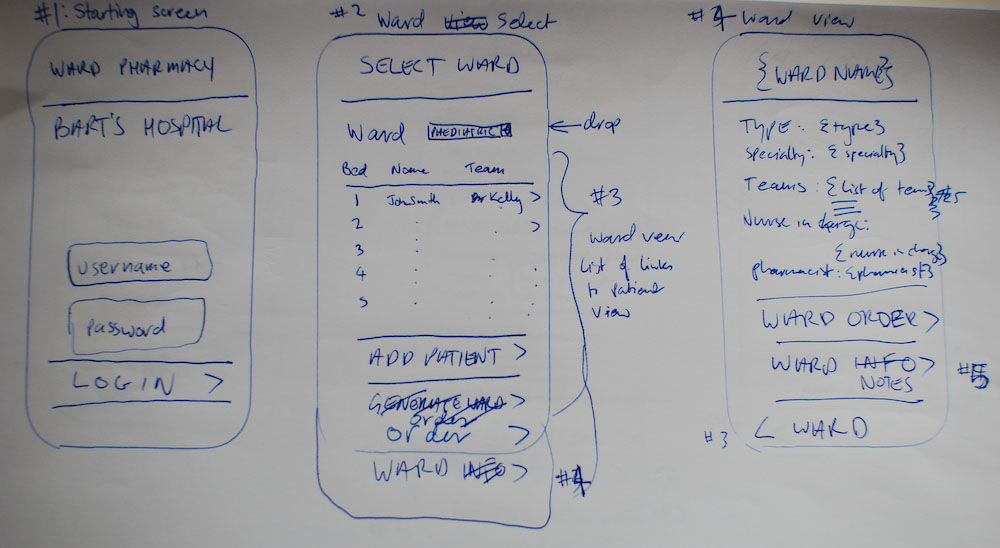 #1: Starting screen
WARD PHARMACY
BART'S HOSPITAL
username
password
LOGIN >
#2 Ward View Select
SELECT WARD
Ward PAEDIATRIC
← drop
Bed Name Team
1 John Smith Dr Kelly >
2 >
3
4
5
#3
Ward view
list of links
to patient
view
ADD PATIENT >
GENERATE WARD >
order
order >
WARD INFO >
#4
#4 Ward view
{WARD NAME}
Type: {type}
Specialty: {specialty}
Teams: {list of teams} #5
Nurse in charge:
{nurse in charge}
pharmacist: {pharmacist}
WARD ORDER >
WARD INFO >
NOTES
#5
#3 < WARD